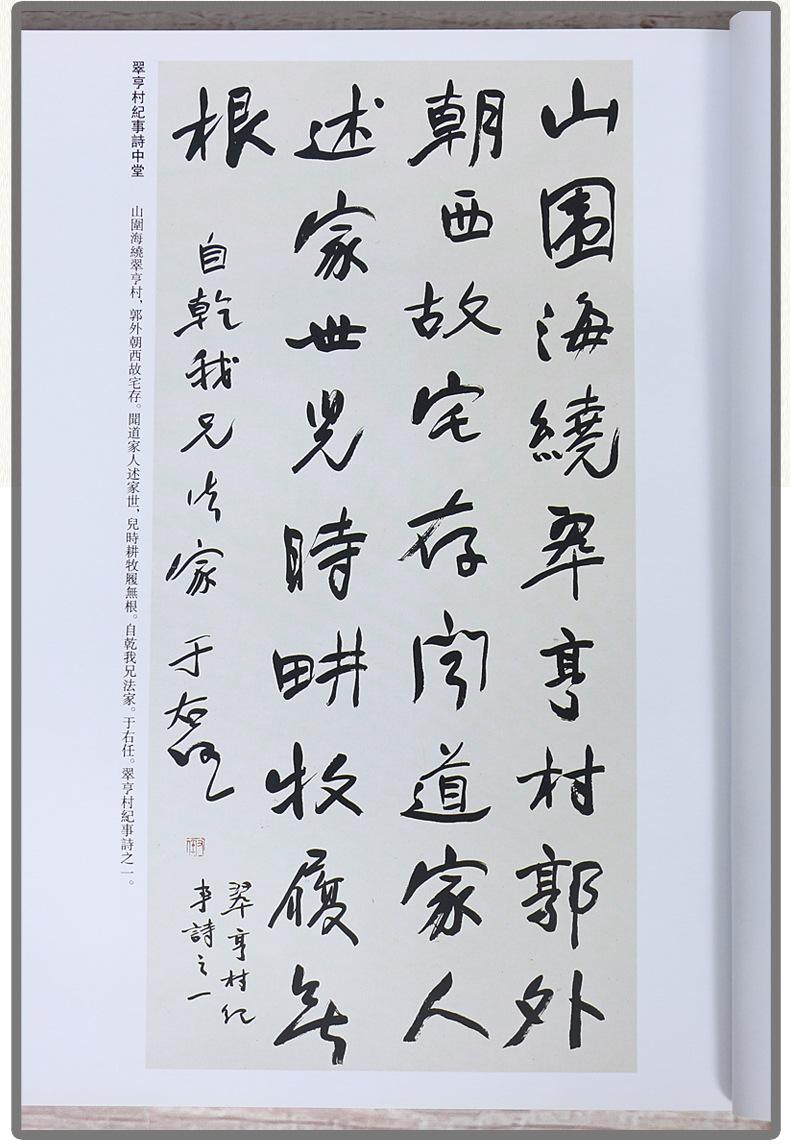 山围海繞翠亨村郭外
朝西故宅存聞道家人
述家世兒時畊牧履無
根
自乾我兄法家
于右任
翠亨村纪
事詩之一
翠亨村紀事詩中堂
山圍海繞翠亨村，郭外朝西故宅存。聞道家人述家世，兒時耕牧履無根。自乾我兄法家。于右任。翠亨村紀事詩之一。